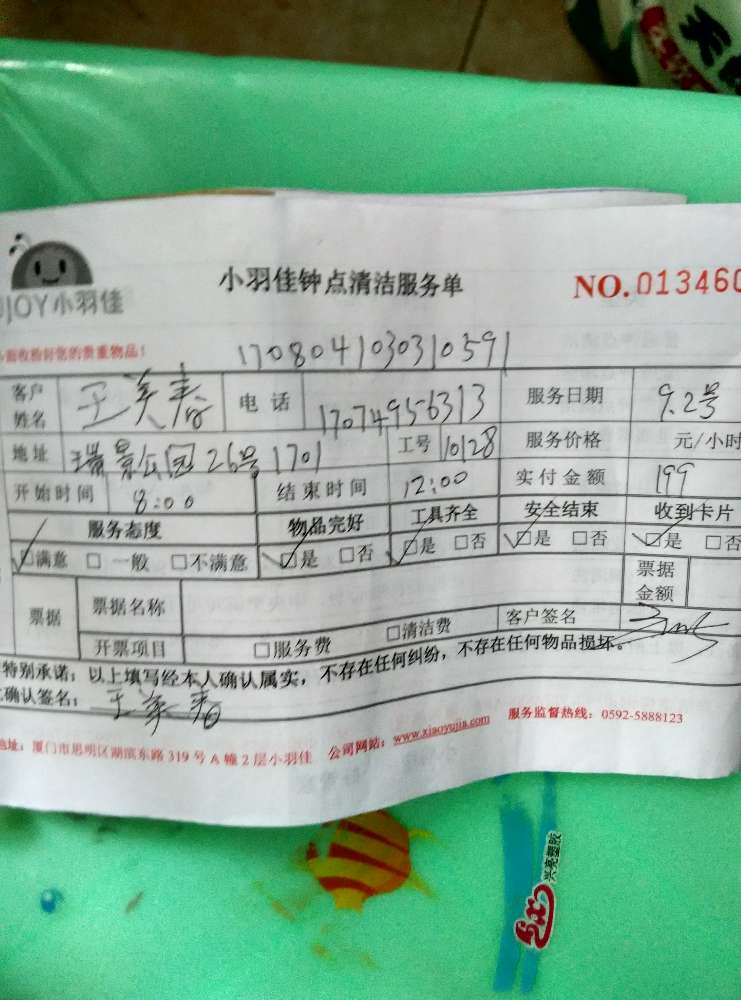 小羽佳钟点清洁服务单
NO.013460
JOY小羽佳
面收拾好您的贵重物品!
1708041030310591
客户姓名 王美春 电话 1707495-6313 服务日期 9.2号
地址 瑞景公园26号1701 工号 10128 服务价格 元/小时
开始时间 8:00 结束时间 12:00 实付金额 199
服务态度 物品完好 工具齐全 安全结束 收到卡片
☑满意 □一般 □不满意 ☑是 □否 ☑是 □否 ☑是 □否 ☑是 □否
票据 票据名称 票据金额
开票项目 □服务费 □清洁费 客户签名
特别承诺:以上填写经本人确认属实,不存在任何纠纷,不存在任何物品损坏。
确认签名:王美春
地址:厦门市思明区湖滨东路319号A幢2层小羽佳 公司网站:www.xiaoyujia.com 服务监督热线:0592-5888123
兴亮塑胶